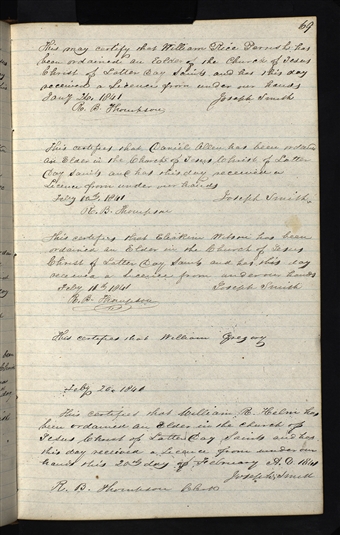 69
This may certify that William Rice Parrish has
been ordained an Elder of the Church of Jesus
Christ of Latter Day Saints and has this day
received a Licence from under our hands
Jany 1841 Joseph Smith
R. B. Thompson,
This certifies that Daniel Allen has been ordain
an Elder in the Church of Jesus Christ of Latter
Day Saints and has this day received a
Licence from under our hands
Feby 10th 1841 Joseph Smith
R. B. Thompson
This certifies that Eleakim Wilson has been
ordained an Elder in the Church of Jesus
Christ of Latter Day Saints and has this day
received a Licence from under our hands
Feby 1841 Joseph Smith
R. B. Thompson
This certifies that William Gregory
Feby 20, 1841
This certifies that William R. Helm has
been ordained an Elder in the Church of
Jesus Christ of Latter Day Saints and has
this day received a Licence from under our
hands this 20th day of February A.D. 1841
Joseph Smith
R. B. Thompson Clerk